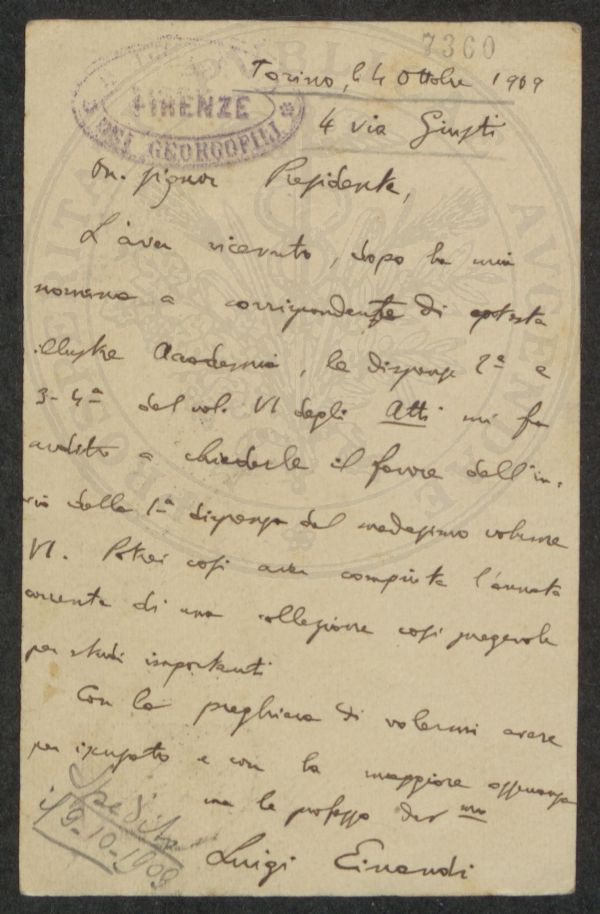 7360
FIRENZE
DEI GEORGOFILI
Torino, li 4 Ottobre 1909
4 via Giusti
On. signor Presidente,
L'aver ricevuto, dopo la mia
nomina a corrispondente di codesta
illustre Accademia, le dispense 2ª e
3-4ª del vol. VI degli Atti mi fa
ardito a chiederle il favore dell'in-
vio della 1ª dispensa del medesimo volume
VI. Potrei così aver compiuta l'annata
corrente di una collezione così pregevole
per studi importanti
Con la preghiera di volermi avere
per iscusato e con la maggiore osservanza
me le professo dev mo
Luigi Einaudi
Spedita
il 9-10-1909